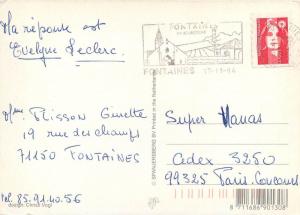 Ma réponse est
Evelyne Leclerc.
FONTAINES
EN BOURGOGNE
FONTAINES 17-11-94
Mme Plisson Ginette
19 rue des champs
71150 FONTAINES
Tel. 85.91.40.56
Super Nanas
Cedex 3250
99325 Paris-Concours
© SPANJERSBERG BV Printed in the Netherlands
design: Christl Vogl
8 711686 901308